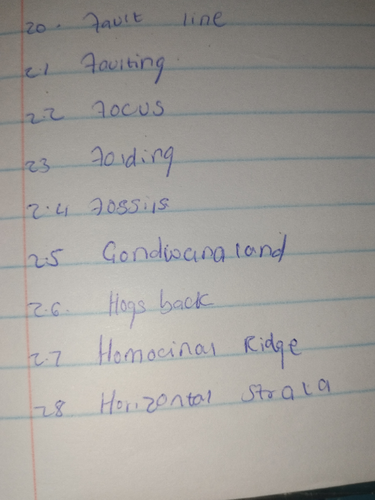 20. Fault line
21 Faulting
22 Focus
23 Folding
2.4 Fossils
25 Gondwana land
2.6. Hogs back
27 Homocinal Ridge
28 Horizontal Strata